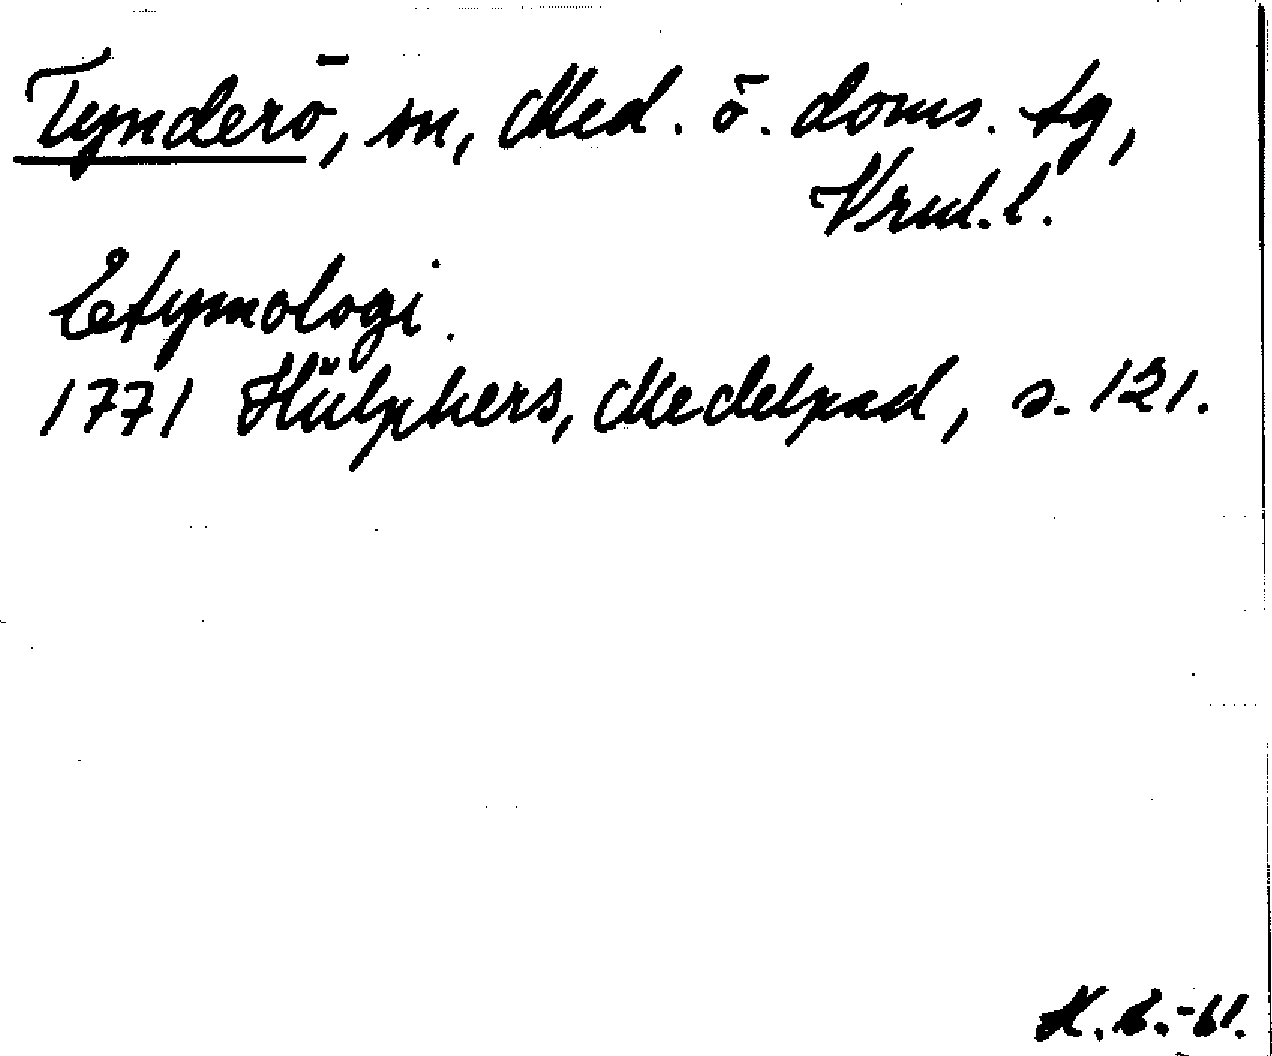 Tynderö, sn, Med. ö. doms. tg,
Vrnl. l.
Etymologi.
1771 Hülphers, Medelpad, s. 121.